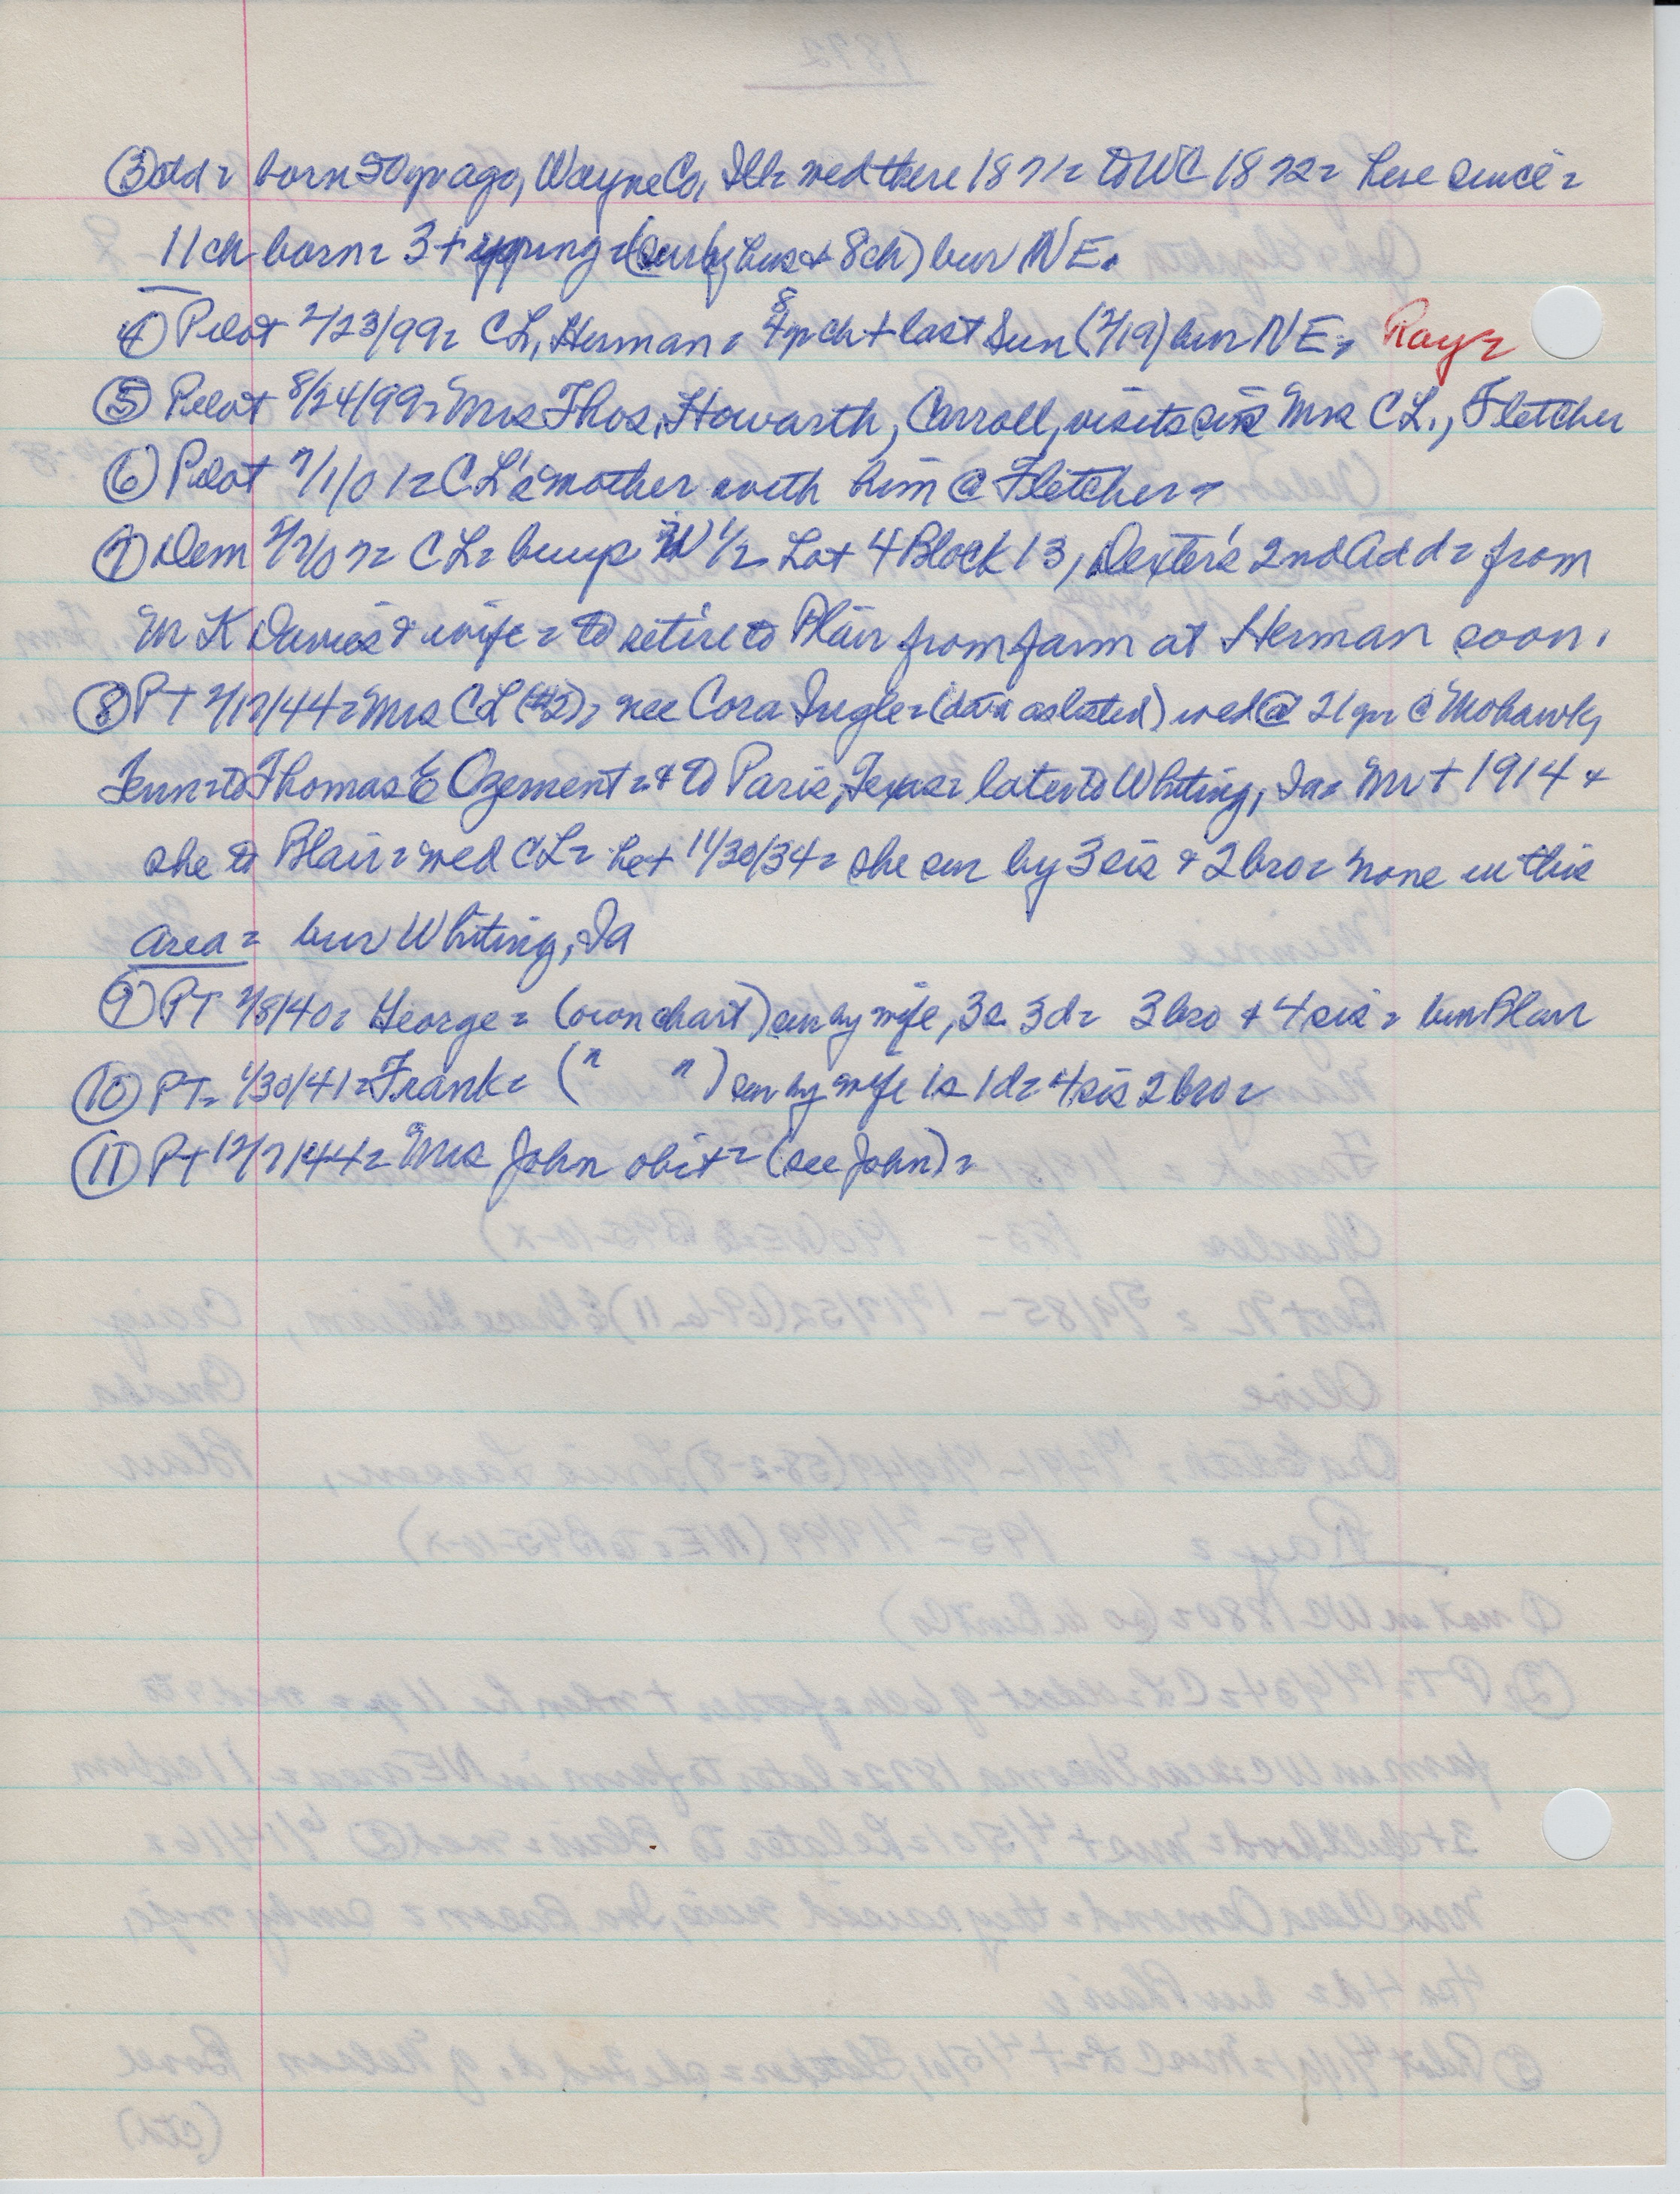 ③ ctd = born 50 yr ago, Wayne Co, Ill = wed there 1871 = to WC 1872 = here since =
11 ch born = 3 + young = (sur by hus + 8 ch) bur NE.
④ Pilot 2/23/99 = CL, Herman = 4 yr 8 ch + last Sun (2/19) bur NE = Ray =
⑤ Pilot 8/24/99 = Mrs Thos. Howarth, Carroll, visits sis Mrs CL., Fletcher
⑥ Pilot 7/1/01 = CL's mother with him @ Fletcher =
⑦ Dem 2/7/07 = CL = buys W 1/2 Lot 4 Block 13, Dexter's 2nd Add = from
M K Davies & wife = to retire to Blair from farm at Herman soon.
⑧ PT 2/17/44 = Mrs CL (#2), nee Cora Ingle = (data as listed) wed @ 21 yr @ Mohawk,
Tenn = to Thomas E Ozement = & to Paris, Texas = later to Whiting, Ia = Mr + 1914 &
she to Blair = wed CL = he + 11/30/34 = she sur by 3 sis & 2 bro = none in this
area = bur Whiting, Ia
⑨ PT 2/8/40 = George = (own chart) sur by wife, 3s 3d = 3 bro & 4 sis = bur Blair
⑩ PT = 1/30/41 = Frank = ( " " ) sur by wife 1s 1d = 4 sis 2 bro =
⑪ PT 12/7/44 = Mrs John obit = (see John) =